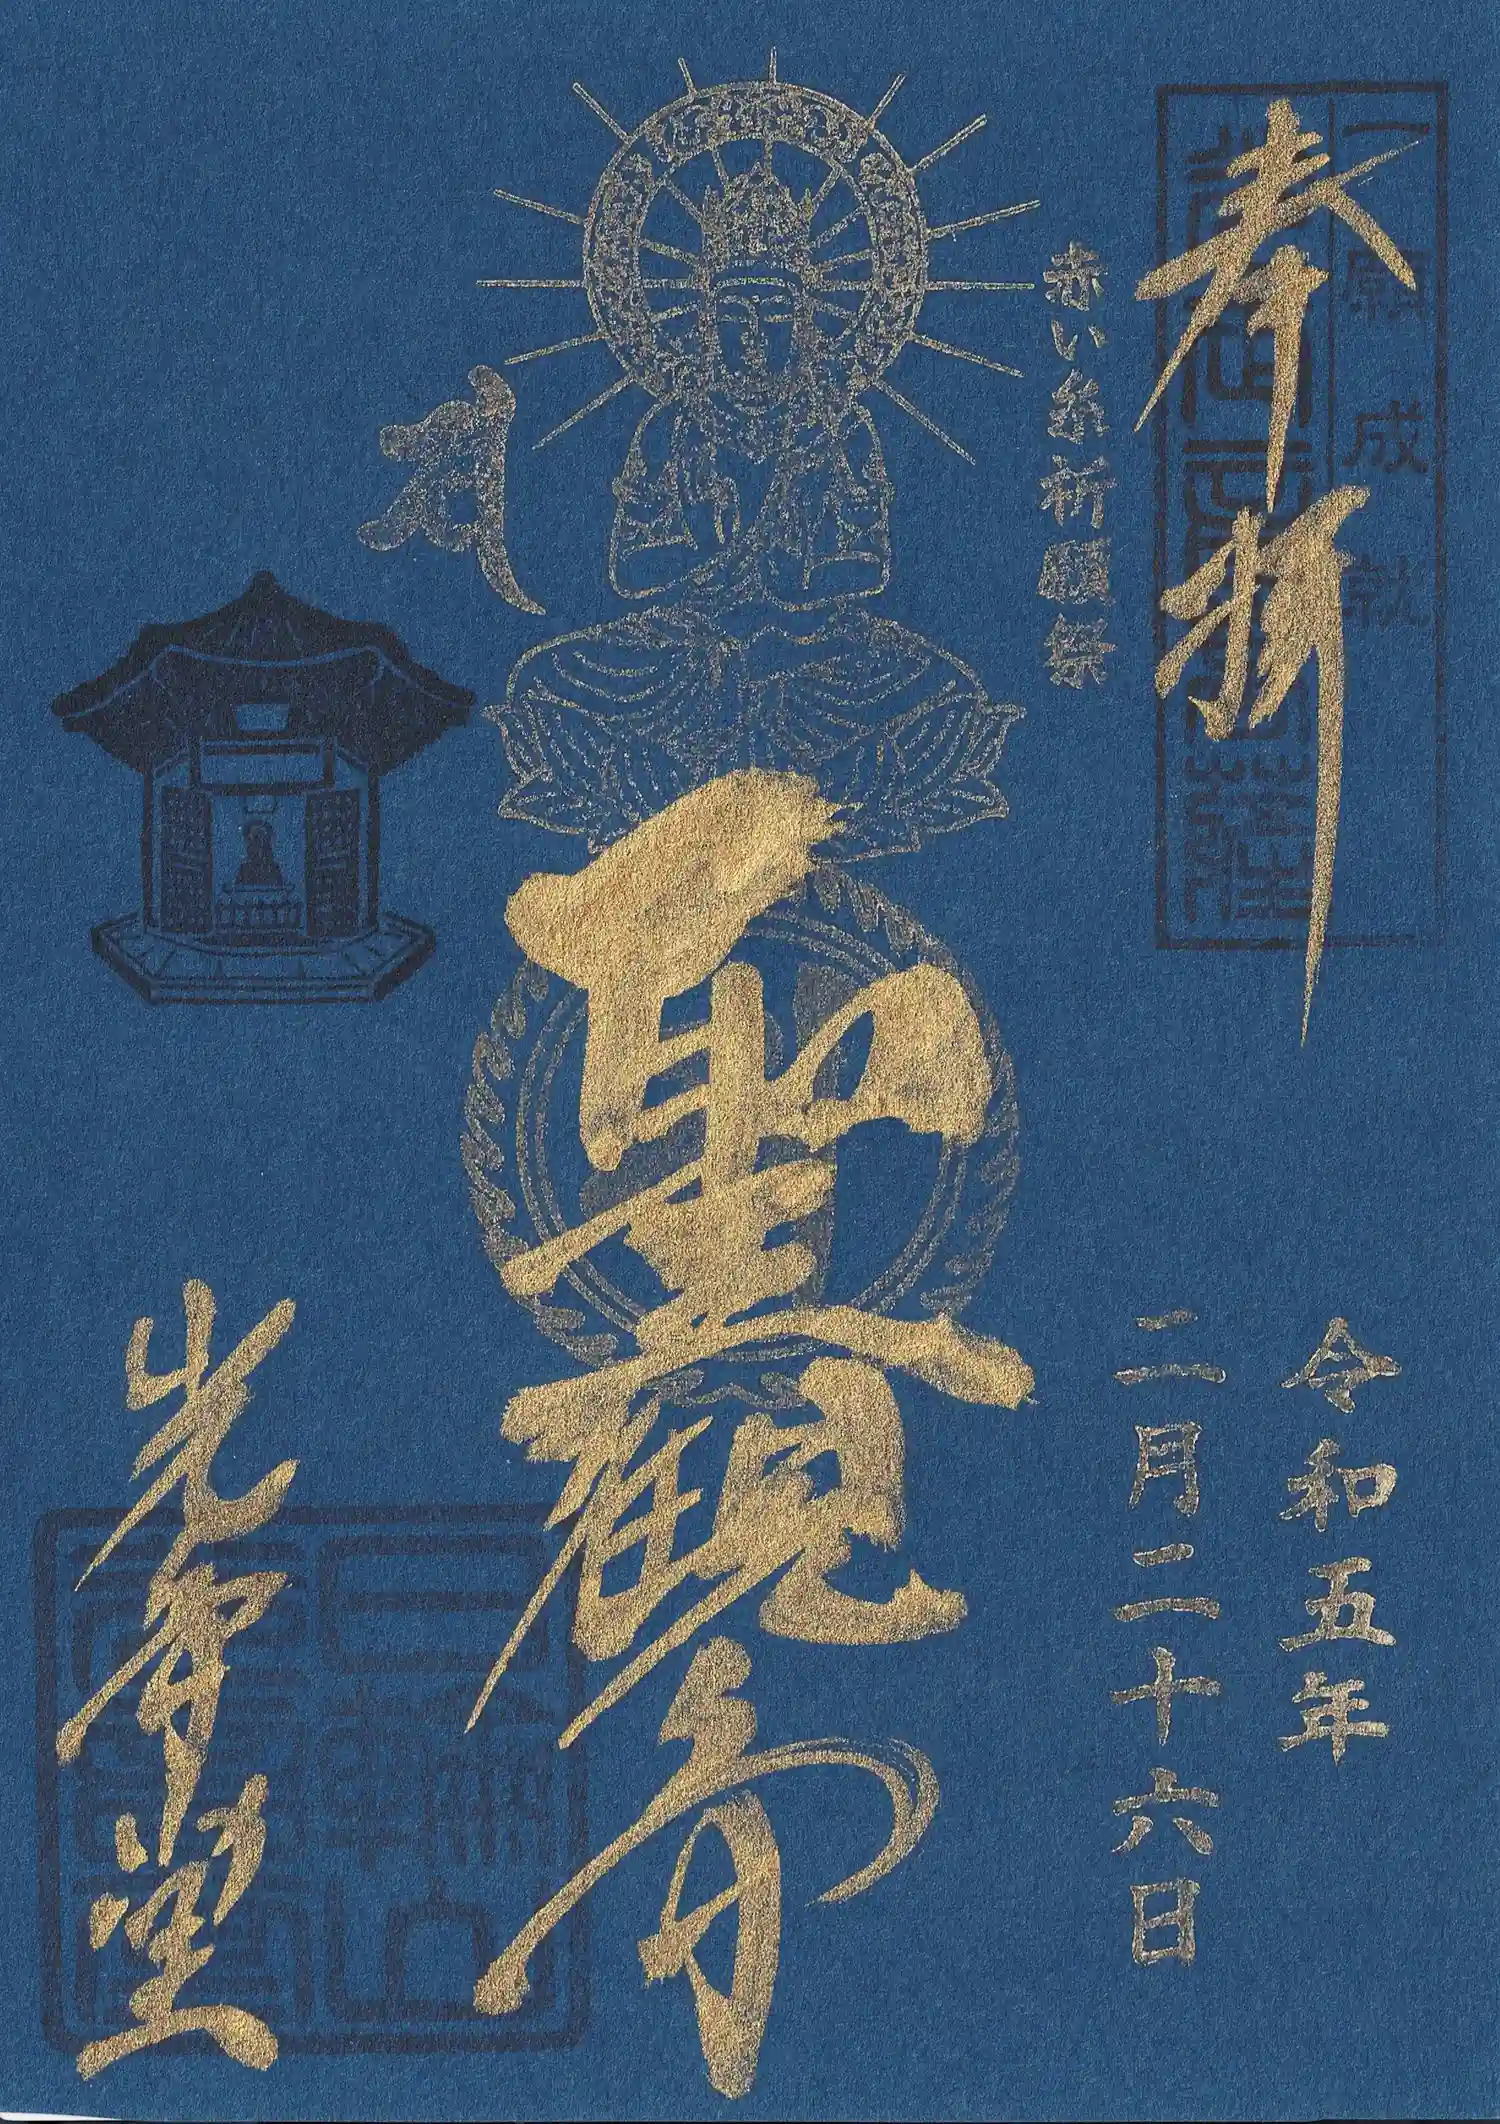 一願成就
奉拝
赤い糸祈願祭
令和五年
二月二十六日
聖観音
光智堂